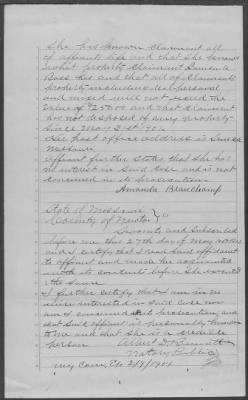 She has known claimant all
of affiants life and that she knows
what property Claimant
Ross has and that all of Claimants
property including real personal
and mixed will not exceed the
value of $250.00 and that Claimant
has not disposed of any property
since May 31st 190
Her Post office address is Seneca
Missouri
Affiant further States that She has
no interest in said case and is not
concerned in its prosecution
Amanda Beauchamp
State of Missouri
County of Newton } ss
Sworn to and Subscribed
before me this 27th day of May
and I certify that I read said affidavit
to affiant and made her acquainted
with its contents before she executed
the same
I further certify that I am in no
wise interested in said case nor
am I concerned in its prosecution, and
that said affiant is personally known
to me and that she is a credible
person Albert D.
Notary Public
my Com. Ex